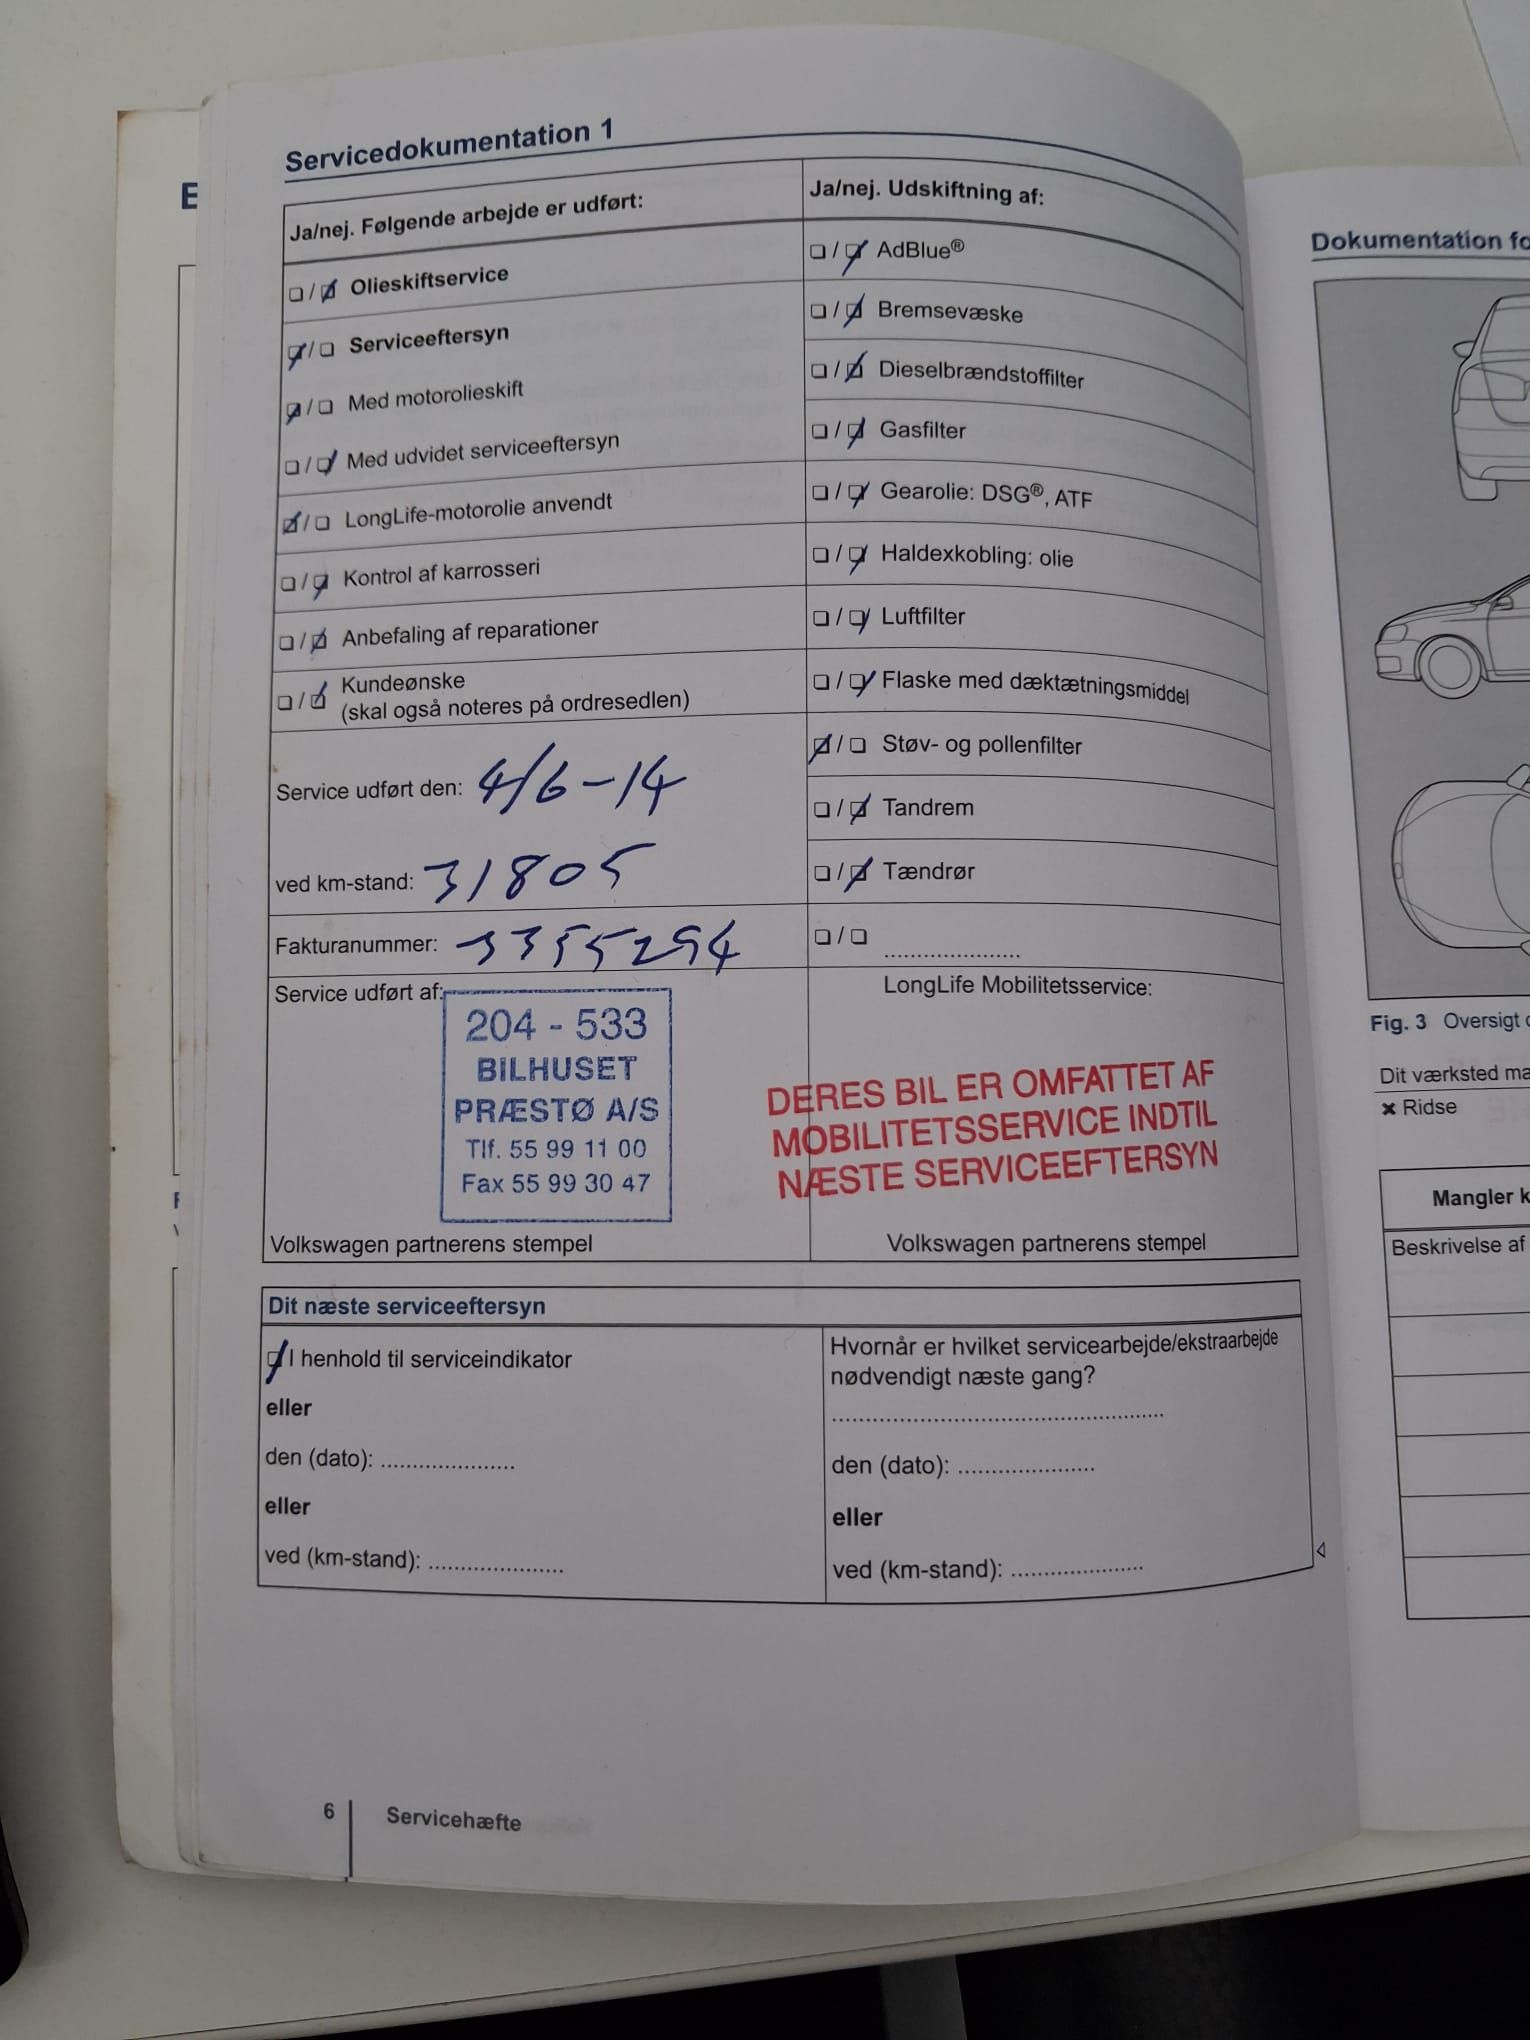 Servicedokumentation 1
Ja/nej. Følgende arbejde er udført:
☐ / ☑ Olieskiftservice
☑ / ☐ Serviceeftersyn
☑ / ☐ Med motorolieskift
☐ / ☑ Med udvidet serviceeftersyn
☑ / ☐ LongLife-motorolie anvendt
☐ / ☑ Kontrol af karrosseri
☐ / ☑ Anbefaling af reparationer
☐ / ☑ Kundeønske
(skal også noteres på ordresedlen)
Service udført den: 4/6-14
ved km-stand: 31805
Fakturanummer: 3355294
Service udført af:
204 - 533
BILHUSET
PRÆSTØ A/S
Tlf. 55 99 11 00
Fax 55 99 30 47
Volkswagen partnerens stempel
Ja/nej. Udskiftning af:
☐ / ☑ AdBlue®
☐ / ☑ Bremsevæske
☐ / ☑ Dieselbrændstoffilter
☐ / ☑ Gasfilter
☐ / ☑ Gearolie: DSG®, ATF
☐ / ☑ Haldexkobling: olie
☐ / ☑ Luftfilter
☐ / ☑ Flaske med dæktætningsmiddel
☑ / ☐ Støv- og pollenfilter
☐ / ☑ Tandrem
☐ / ☑ Tændrør
☐ / ☐ .....................
LongLife Mobilitetsservice:
DERES BIL ER OMFATTET AF
MOBILITETSSERVICE INDTIL
NÆSTE SERVICEEFTERSYN
Volkswagen partnerens stempel
Dit næste serviceeftersyn
☑ I henhold til serviceindikator
eller
den (dato): .....................
eller
ved (km-stand): .....................
Hvornår er hvilket servicearbejde/ekstraarbejde
nødvendigt næste gang?
.....................................................
den (dato): .....................
eller
ved (km-stand): .....................
6
Servicehæfte
Dokumentation
Fig. 3 Oversigt
Dit værksted
✖ Ridse
Mangler
Beskrivelse af